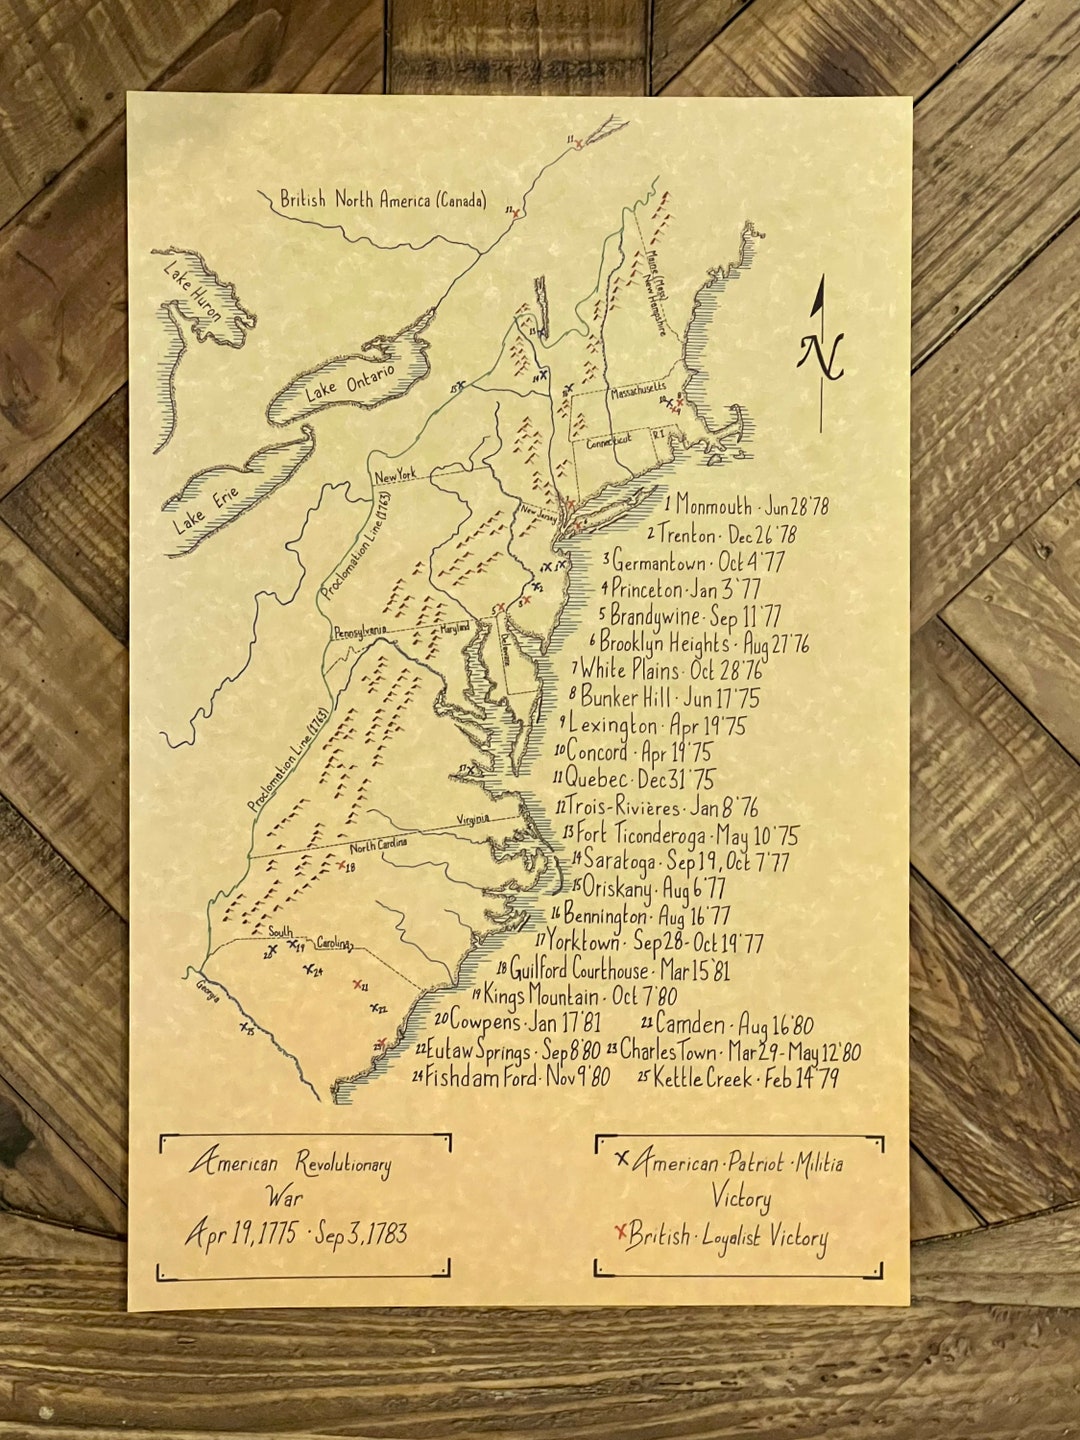 British North America (Canada)
Lake Huron
Lake Ontario
Lake Erie
Maine (Mass)
New Hampshire
N
Massachusetts
Connecticut
R.I
New York
New Jersey
Proclamation Line (1763)
Pennsylvania
Maryland
Delaware
Proclamation Line (1763)
Virginia
North Carolina
South Carolina
Georgia
1 Monmouth · Jun 28 '78
2 Trenton · Dec 26 '78
3 Germantown · Oct 4 '77
4 Princeton · Jan 3 '77
5 Brandywine · Sep 11 '77
6 Brooklyn Heights · Aug 27 '76
7 White Plains · Oct 28 '76
8 Bunker Hill · Jun 17 '75
9 Lexington · Apr 19 '75
10 Concord · Apr 19 '75
11 Quebec · Dec 31 '75
12 Trois-Rivières · Jan 8 '76
13 Fort Ticonderoga · May 10 '75
14 Saratoga · Sep 19, Oct 7 '77
15 Oriskany · Aug 6 '77
16 Bennington · Aug 16 '77
17 Yorktown · Sep 28 - Oct 19 '77
18 Guilford Courthouse · Mar 15 '81
19 Kings Mountain · Oct 7 '80
20 Cowpens · Jan 17 '81 21 Camden · Aug 16 '80
22 Eutaw Springs · Sep 8 '80 23 Charles Town · Mar 29 - May 12 '80
24 Fishdam Ford · Nov 9 '80 25 Kettle Creek · Feb 14 '79
American Revolutionary
War
Apr 19, 1775 · Sep 3, 1783
X American · Patriot · Militia
Victory
X British · Loyalist Victory